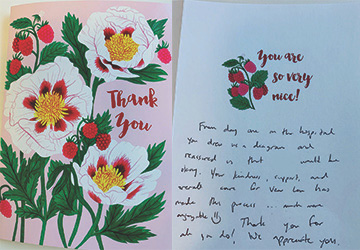 Thank
You
You are
so very
nice!
From day one in the hospital
you drew us a diagram and
reassured us that would be
okay. Your kindness, support, and
overall care for has
made this process ... much more
enjoyable Thank you for
all you do! We appreciate you.